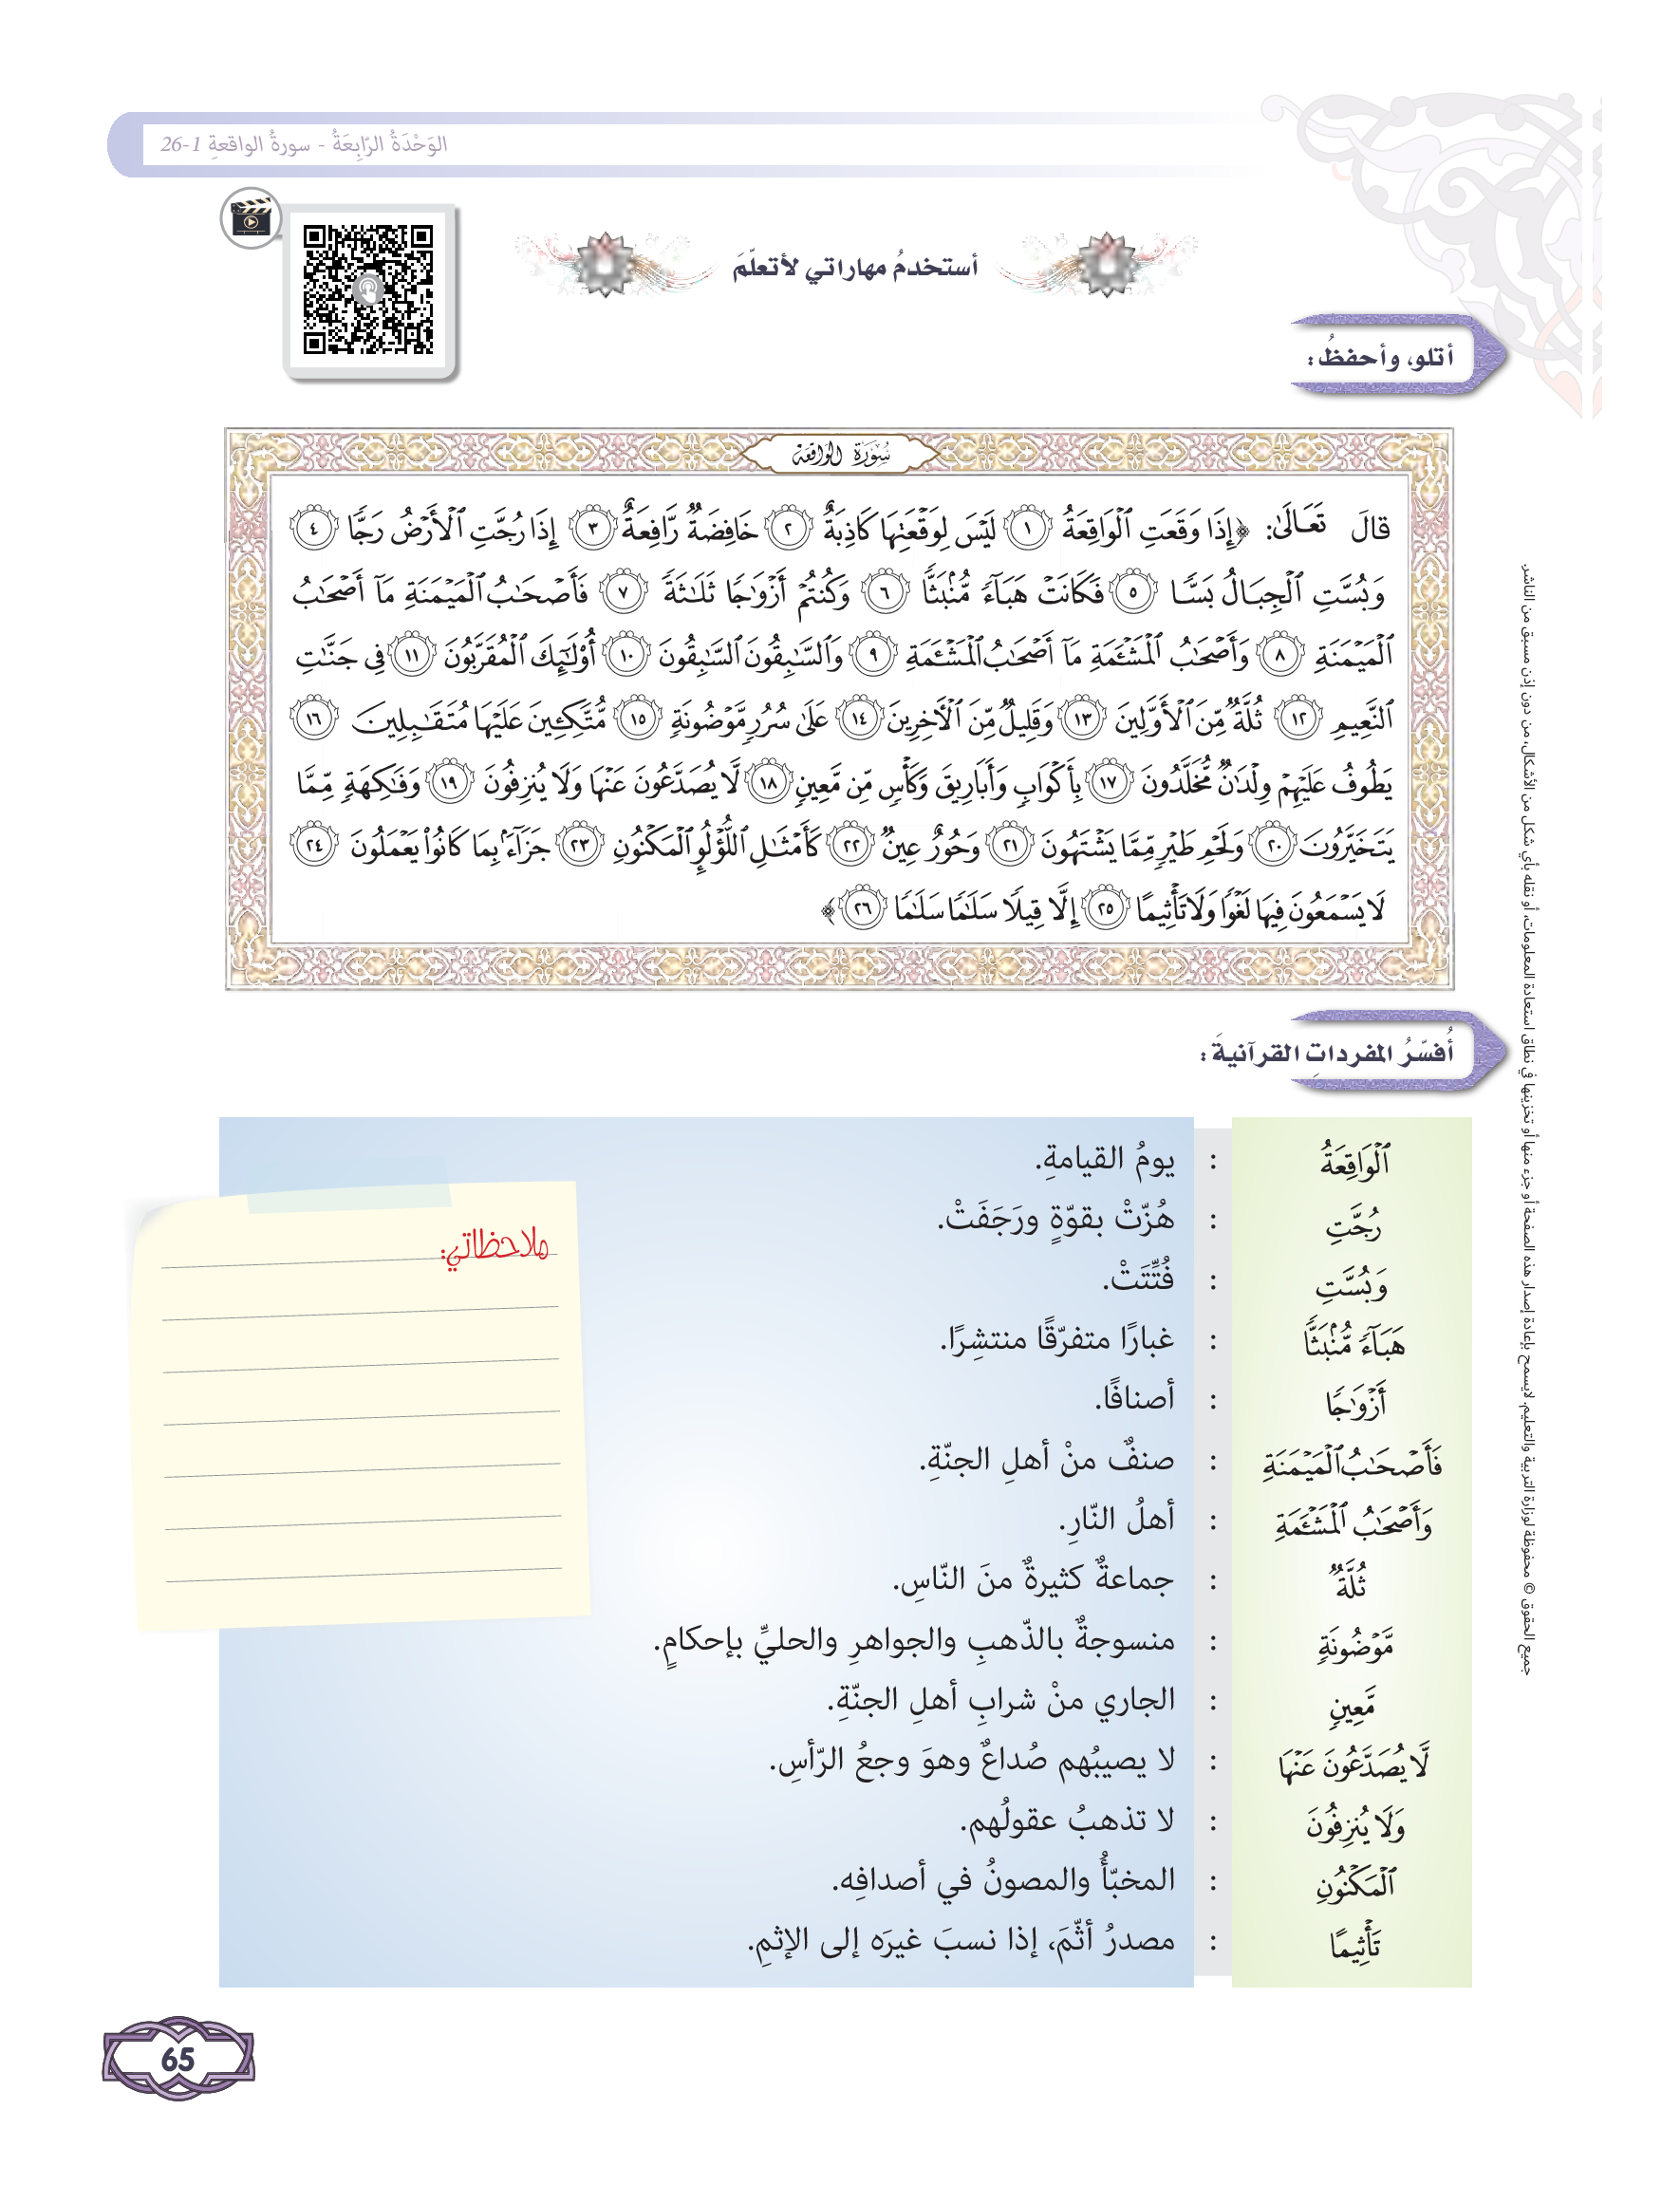 الوَحْدَةُ الرّابِعَةُ - سورةُ الواقعةِ 1-26
أستخدمُ مهاراتي لأتعلّمَ
أتلو، وأحفظُ:
سُورَة الواقِعَة
قالَ تَعَالَىٰ: ﴿إِذَا وَقَعَتِ ٱلْوَاقِعَةُ ١ لَيْسَ لِوَقْعَتِهَا كَاذِبَةٌ ٢ خَافِضَةٌ رَّافِعَةٌ ٣ إِذَا رُجَّتِ ٱلْأَرْضُ رَجًّا ٤
وَبُسَّتِ ٱلْجِبَالُ بَسًّا ٥ فَكَانَتْ هَبَآءً مُّنۢبَثًّا ٦ وَكُنتُمْ أَزْوَٰجًا ثَلَٰثَةً ٧ فَأَصْحَٰبُ ٱلْمَيْمَنَةِ مَآ أَصْحَٰبُ
ٱلْمَيْمَنَةِ ٨ وَأَصْحَٰبُ ٱلْمَشْـَٔمَةِ مَآ أَصْحَٰبُ ٱلْمَشْـَٔمَةِ ٩ وَٱلسَّٰبِقُونَ ٱلسَّٰبِقُونَ ١٠ أُو۟لَٰٓئِكَ ٱلْمُقَرَّبُونَ ١١ فِى جَنَّٰتِ
ٱلنَّعِيمِ ١٢ ثُلَّةٌ مِّنَ ٱلْأَوَّلِينَ ١٣ وَقَلِيلٌ مِّنَ ٱلْـَٔاخِرِينَ ١٤ عَلَىٰ سُرُرٍ مَّوْضُونَةٍ ١٥ مُّتَّكِـِٔينَ عَلَيْهَا مُتَقَٰبِلِينَ ١٦
يَطُوفُ عَلَيْهِمْ وِلْدَٰنٌ مُّخَلَّدُونَ ١٧ بِأَكْوَابٍ وَأَبَارِيقَ وَكَأْسٍ مِّن مَّعِينٍ ١٨ لَّا يُصَدَّعُونَ عَنْهَا وَلَا يُنزِفُونَ ١٩ وَفَٰكِهَةٍ مِّمَّا
يَتَخَيَّرُونَ ٢٠ وَلَحْمِ طَيْرٍ مِّمَّا يَشْتَهُونَ ٢١ وَحُورٌ عِينٌ ٢٢ كَأَمْثَٰلِ ٱللُّؤْلُؤِ ٱلْمَكْنُونِ ٢٣ جَزَآءًۢ بِمَا كَانُوا۟ يَعْمَلُونَ ٢٤
لَا يَسْمَعُونَ فِيهَا لَغْوًا وَلَا تَأْثِيمًا ٢٥ إِلَّا قِيلًا سَلَٰمًا سَلَٰمًا ٢٦﴾
أُفسّرُ المفرداتِ القرآنيةَ:
ٱلْوَاقِعَةُ : يومُ القيامةِ.
رُجَّتِ : هُزّتْ بقوّةٍ ورَجَفَتْ.
وَبُسَّتِ : فُتِّتَتْ.
هَبَآءً مُّنۢبَثًّا : غبارًا متفرّقًا منتشِرًا.
أَزْوَٰجًا : أصنافًا.
فَأَصْحَٰبُ ٱلْمَيْمَنَةِ : صنفٌ منْ أهلِ الجنّةِ.
وَأَصْحَٰبُ ٱلْمَشْـَٔمَةِ : أهلُ النّارِ.
ثُلَّةٌ : جماعةٌ كثيرةٌ منَ النّاسِ.
مَّوْضُونَةٍ : منسوجةٌ بالذّهبِ والجواهرِ والحليِّ بإحكامٍ.
مَّعِينٍ : الجاري منْ شرابِ أهلِ الجنّةِ.
لَّا يُصَدَّعُونَ عَنْهَا : لا يصيبُهم صُداعٌ وهوَ وجعُ الرّأسِ.
وَلَا يُنزِفُونَ : لا تذهبُ عقولُهم.
ٱلْمَكْنُونِ : المخبّأُ والمصونُ في أصدافِه.
تَأْثِيمًا : مصدرُ أثّمَ، إذا نسبَ غيرَه إلى الإثمِ.
ملاحظاتي:
جميع الحقوق © محفوظة لوزارة التربية والتعليم. لايسمح بإعادة إصدار هذه الصفحة أو جزء منها أو تخزينها في نطاق استعادة المعلومات، أو نقله بأي شكل من الأشكال، من دون إذن مسبق من الناشر
65